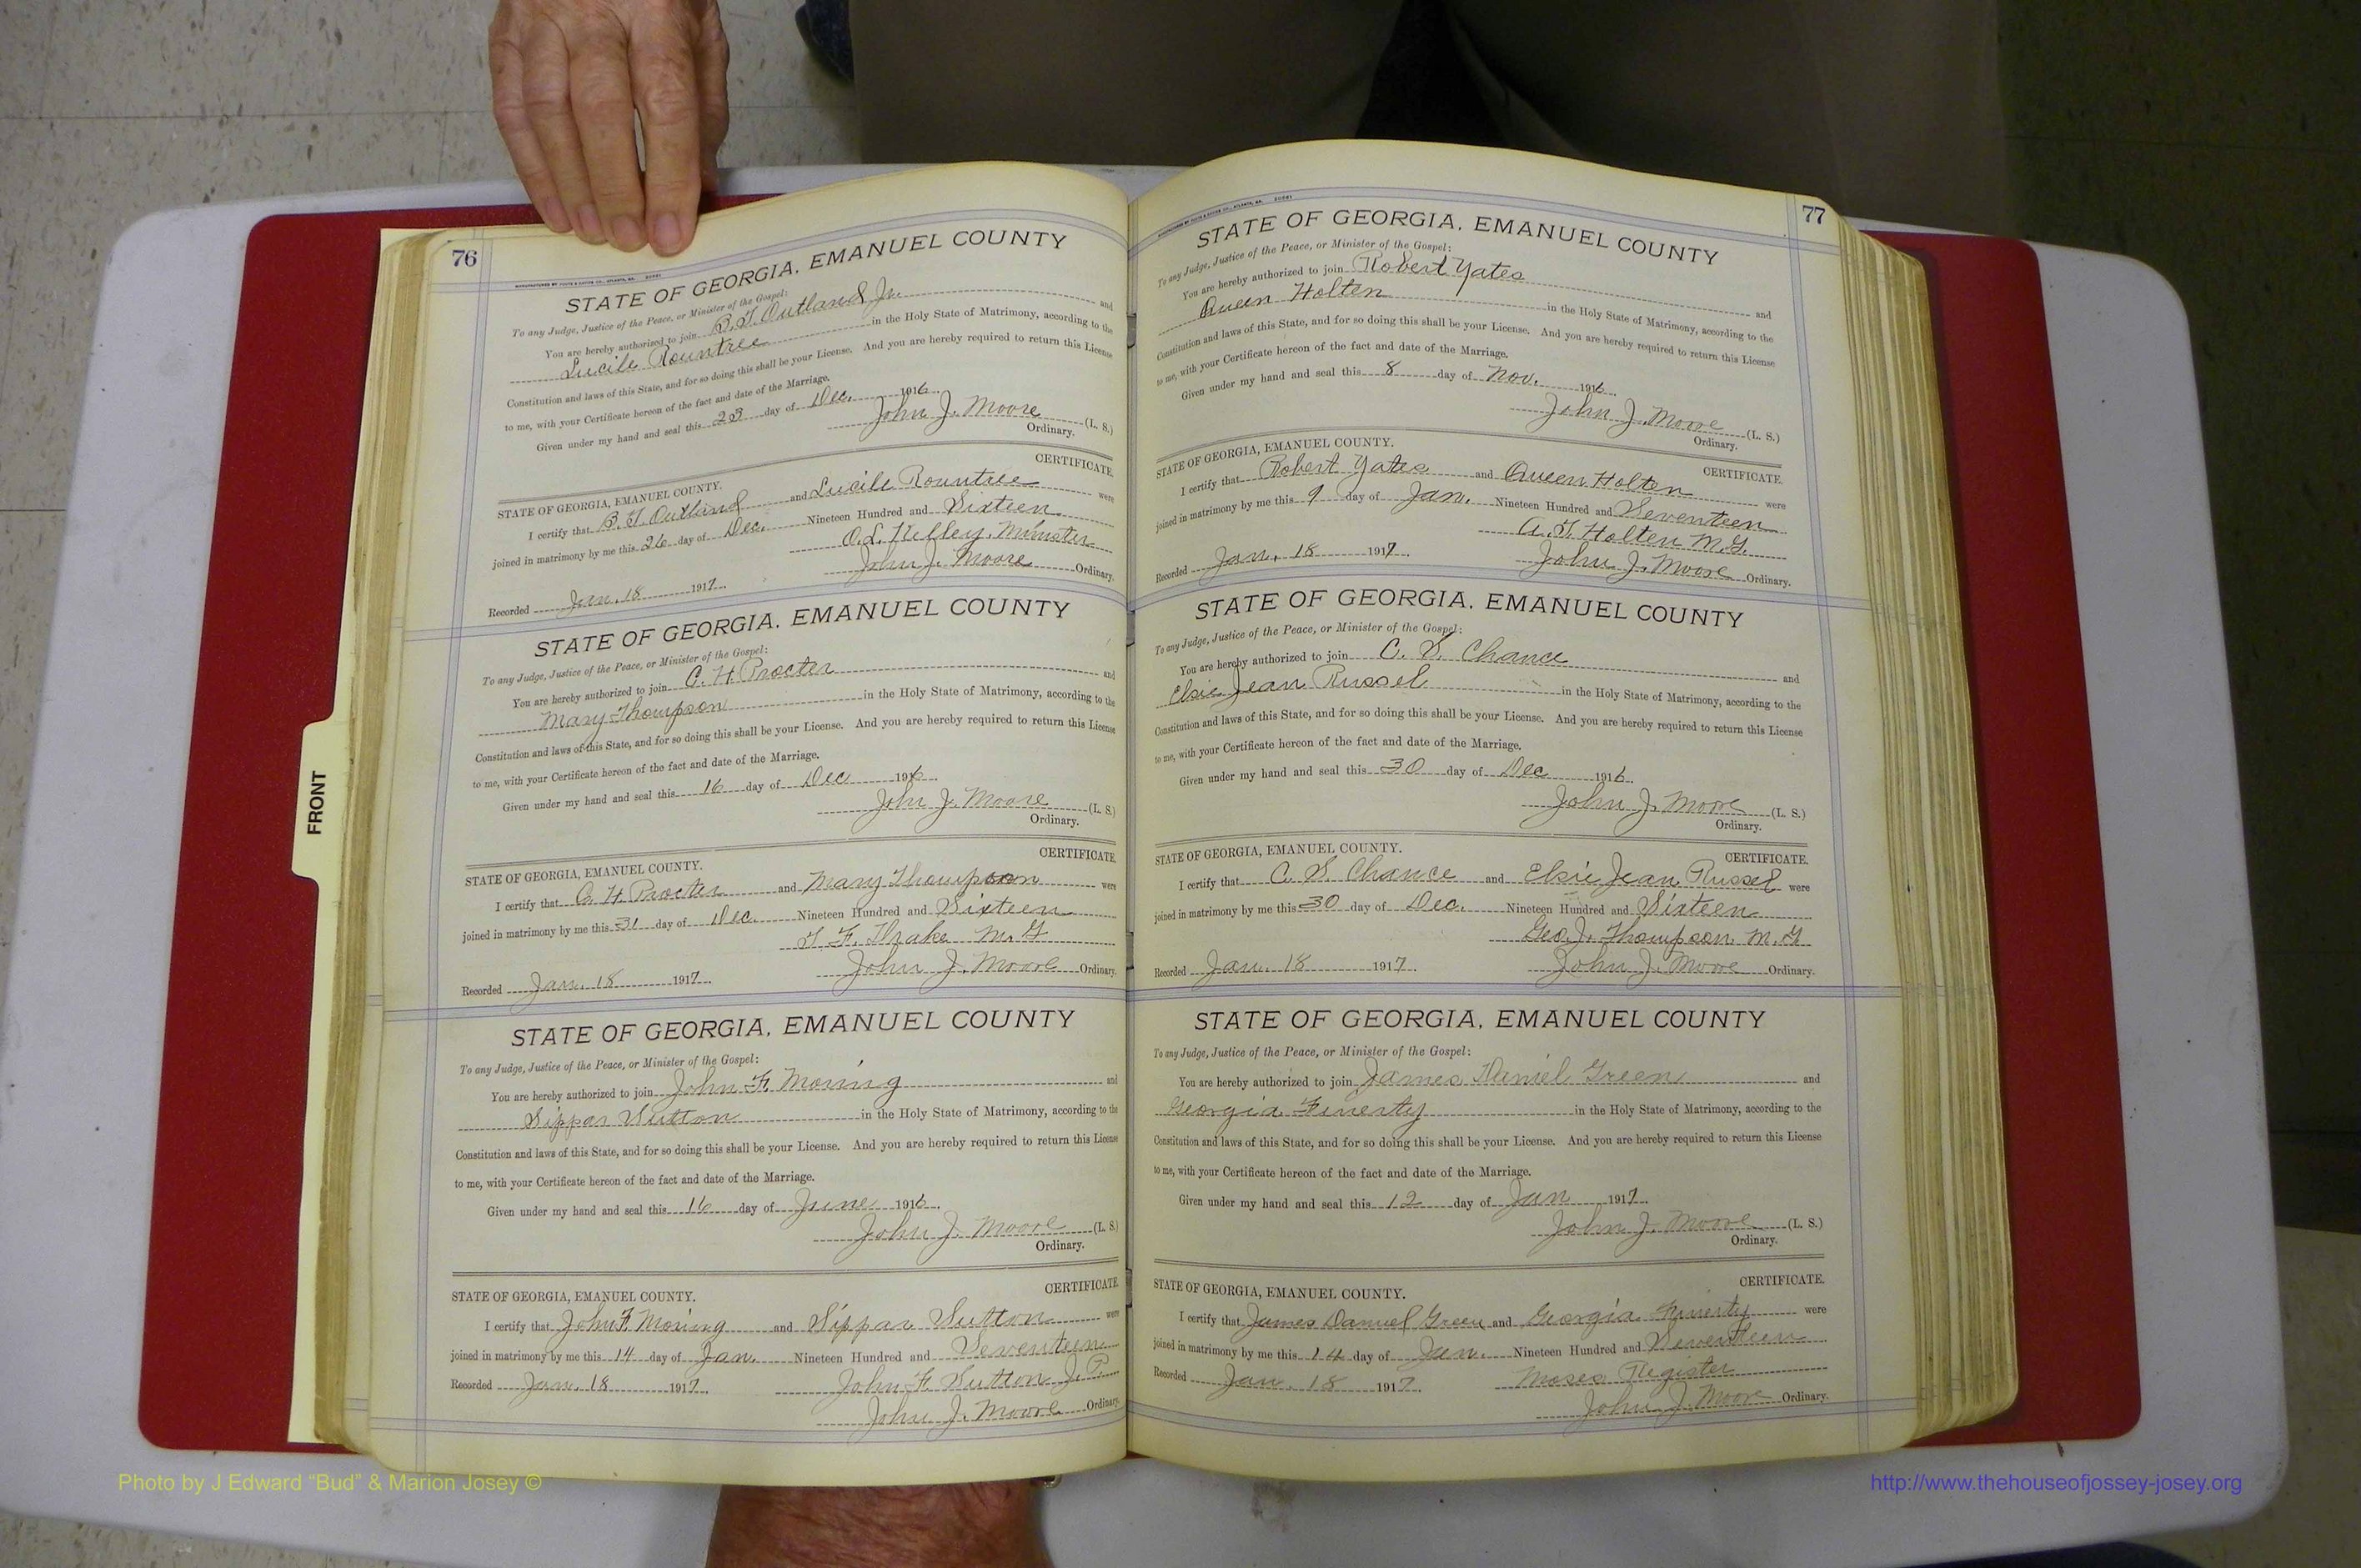 76
STATE OF GEORGIA, EMANUEL COUNTY
To any Judge, Justice of the Peace, or Minister of the Gospel:
You are hereby authorized to join B. T. Outland Jr. and
Lucile Rountree in the Holy State of Matrimony, according to the
Constitution and laws of this State, and for so doing this shall be your License. And you are hereby required to return this License
to me, with your Certificate hereon of the fact and date of the Marriage.
Given under my hand and seal this 23 day of Dec. 1916
John J. Moore (L. S.)
Ordinary.
CERTIFICATE.
STATE OF GEORGIA, EMANUEL COUNTY.
I certify that B. T. Outland and Lucile Rountree were
joined in matrimony by me this 26 day of Dec. Nineteen Hundred and Sixteen
O. L. Kelley, Minister
Recorded Jan. 18 1917. John J. Moore Ordinary.
STATE OF GEORGIA, EMANUEL COUNTY
To any Judge, Justice of the Peace, or Minister of the Gospel:
You are hereby authorized to join C. H. Procter and
Mary Thompson in the Holy State of Matrimony, according to the
Constitution and laws of this State, and for so doing this shall be your License. And you are hereby required to return this License
to me, with your Certificate hereon of the fact and date of the Marriage.
Given under my hand and seal this 16 day of Dec 1916
John J. Moore (L. S.)
Ordinary.
CERTIFICATE.
STATE OF GEORGIA, EMANUEL COUNTY.
I certify that C. H. Procter and Mary Thompson were
joined in matrimony by me this 31 day of Dec. Nineteen Hundred and Sixteen
T. F. Drake M. G
Recorded Jan. 18 1917. John J. Moore Ordinary.
STATE OF GEORGIA, EMANUEL COUNTY
To any Judge, Justice of the Peace, or Minister of the Gospel:
You are hereby authorized to join John F. Moring and
Sippar Sutton in the Holy State of Matrimony, according to the
Constitution and laws of this State, and for so doing this shall be your License. And you are hereby required to return this License
to me, with your Certificate hereon of the fact and date of the Marriage.
Given under my hand and seal this 16 day of June 1916.
John J. Moore (L. S.)
Ordinary.
CERTIFICATE.
STATE OF GEORGIA, EMANUEL COUNTY.
I certify that John F. Moring and Sippar Sutton were
joined in matrimony by me this 14 day of Jan. Nineteen Hundred and Seventeen
Recorded Jan. 18 1917. John F. Sutton J. P.
John J. Moore Ordinary.
77
STATE OF GEORGIA, EMANUEL COUNTY
To any Judge, Justice of the Peace, or Minister of the Gospel:
You are hereby authorized to join Robert Yates and
Queen Holten in the Holy State of Matrimony, according to the
Constitution and laws of this State, and for so doing this shall be your License. And you are hereby required to return this License
to me, with your Certificate hereon of the fact and date of the Marriage.
Given under my hand and seal this 8 day of Nov. 1916.
John J. Moore (L. S.)
Ordinary.
STATE OF GEORGIA, EMANUEL COUNTY. CERTIFICATE.
I certify that Robert Yates and Queen Holten were
joined in matrimony by me this 9 day of Jan. Nineteen Hundred and Seventeen
A. T. Holten M. G.
Recorded Jan. 18 1917. John J. Moore Ordinary.
STATE OF GEORGIA, EMANUEL COUNTY
To any Judge, Justice of the Peace, or Minister of the Gospel:
You are hereby authorized to join C. S. Chance and
Elsie Jean Russel in the Holy State of Matrimony, according to the
Constitution and laws of this State, and for so doing this shall be your License. And you are hereby required to return this License
to me, with your Certificate hereon of the fact and date of the Marriage.
Given under my hand and seal this 30 day of Dec 1916.
John J. Moore (L. S.)
Ordinary.
STATE OF GEORGIA, EMANUEL COUNTY. CERTIFICATE.
I certify that C. S. Chance and Elsie Jean Russel were
joined in matrimony by me this 30 day of Dec. Nineteen Hundred and Sixteen
Geo. J. Thompson M. G.
Recorded Jan. 18 1917. John J. Moore Ordinary.
STATE OF GEORGIA, EMANUEL COUNTY
To any Judge, Justice of the Peace, or Minister of the Gospel:
You are hereby authorized to join James Daniel Green and
Georgia Finerty in the Holy State of Matrimony, according to the
Constitution and laws of this State, and for so doing this shall be your License. And you are hereby required to return this License
to me, with your Certificate hereon of the fact and date of the Marriage.
Given under my hand and seal this 12 day of Jan 1917.
John J. Moore (L. S.)
Ordinary.
CERTIFICATE.
STATE OF GEORGIA, EMANUEL COUNTY.
I certify that James Daniel Green and Georgia Finerty were
joined in matrimony by me this 14 day of Jan. Nineteen Hundred and Seventeen
Recorded Jan. 18 1917. Moses Register
John J. Moore Ordinary.
FRONT
Photo by J Edward "Bud" & Marion Josey ©
http://www.thehouseofjossey-josey.org